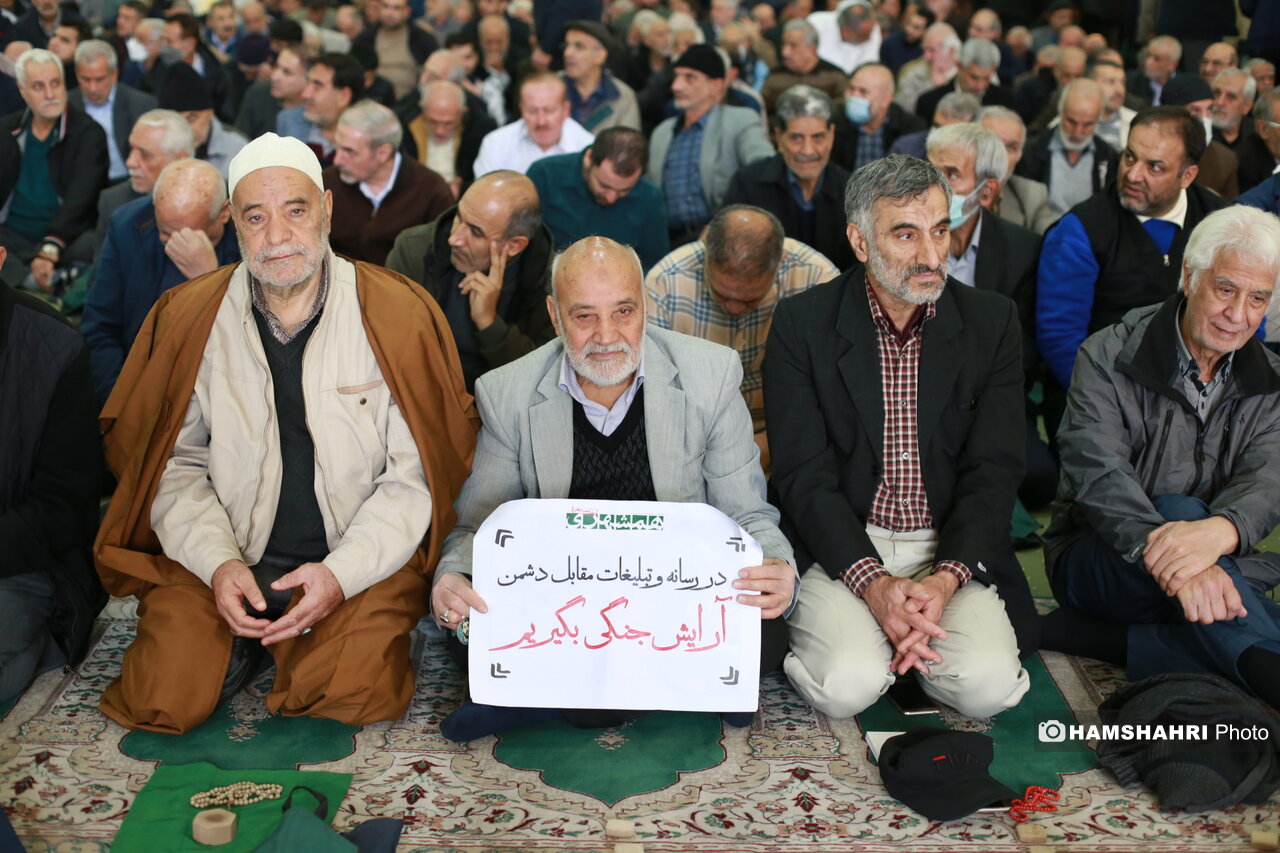 همشهری
در رسانه و تبلیغات مقابل دشمن
آرایش جنگی بگیریم
HAMSHAHRI Photo